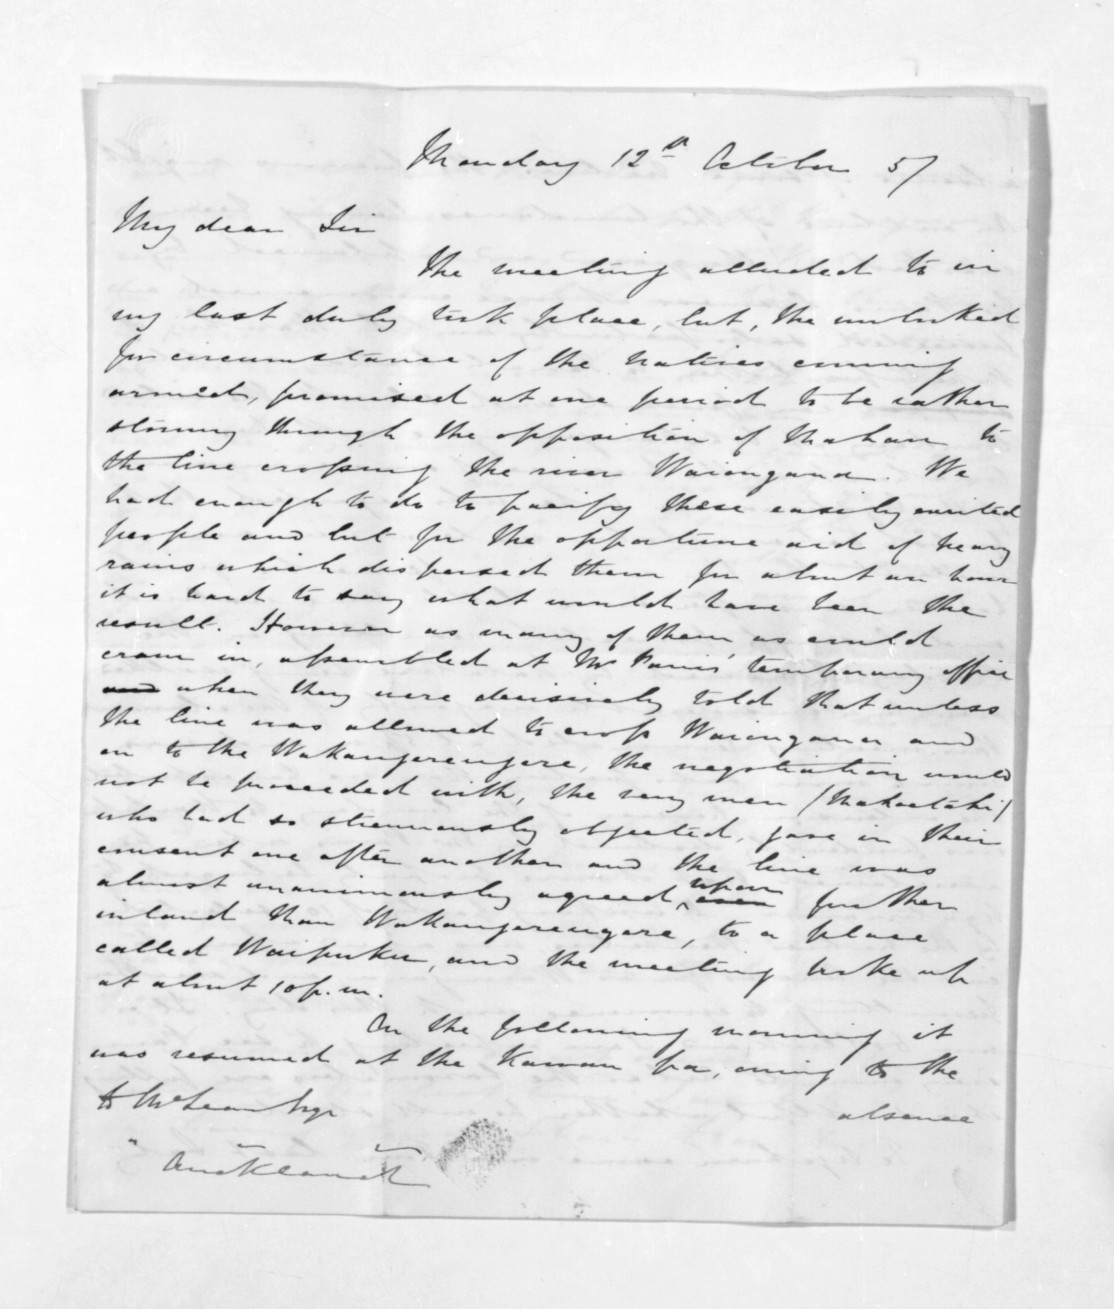 Monday 12th October 57
My dear Sir
The meeting alluded to in
my last duly took place, but, the unlooked
for circumstance of the natives coming
armed, promised at one period to be rather
stormy through the opposition of Mahau to
the line crossing the river Waiongana. We
had enough to do to pacify these easily excited
people and but for the opportune aid of heavy
rains which dispersed them for about an hour
it is hard to say what would have been the
result. However as many of them, as could
cram in, assembled at Mr Parris' temporary office
and when they were decisively told that unless
the line was allowed to cross Waiongana and
on to the Wakangerengere, the negotiation would
not be proceeded with, the very men
who had so strenuously objected, gave in their
consent one after another and the line was
almost unanimously agreed upon even further
inland than Wakangerengere, to a place
called Waipuku, and the meeting broke up
at about 10 p.m.
On the following morning it
was resumed at the Kawau pa, owing to the
absence
McLean Esqr
" " "
Auckland